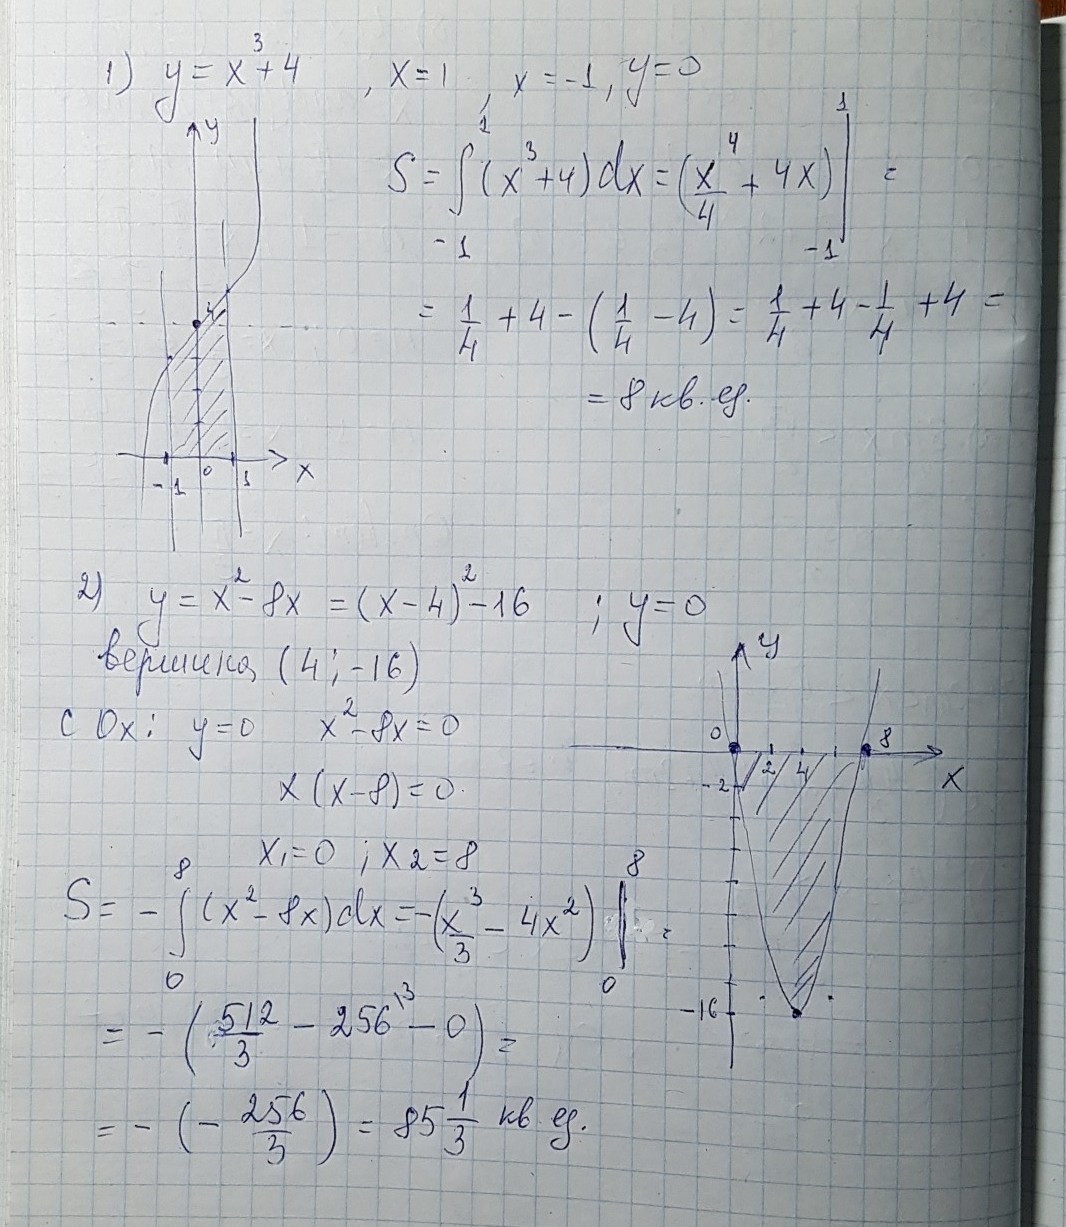 1) y = x³+4 , x=1 , x=-1, y=0
y
S = ∫₋₁¹ (x³+4) dx = (x⁴/4 + 4x) |₋₁¹ =
= 1/4 + 4 - (1/4 - 4) = 1/4 + 4 - 1/4 + 4 =
= 8 кв. ед.
4
-1 0 1 x
2) y = x² - 8x = (x-4)² - 16 ; y=0
вершина (4; -16)
с Ox: y=0 x² - 8x = 0
x(x-8) = 0.
x₁=0 ; x₂=8
S = - ∫₀⁸ (x² - 8x) dx = -(x³/3 - 4x²) |₀⁸ =
= - (512/3 - 256\³ - 0) =
= - (- 256/3) = 85 1/3 кв ед.
y
0 2 4 8 x
-2
-16